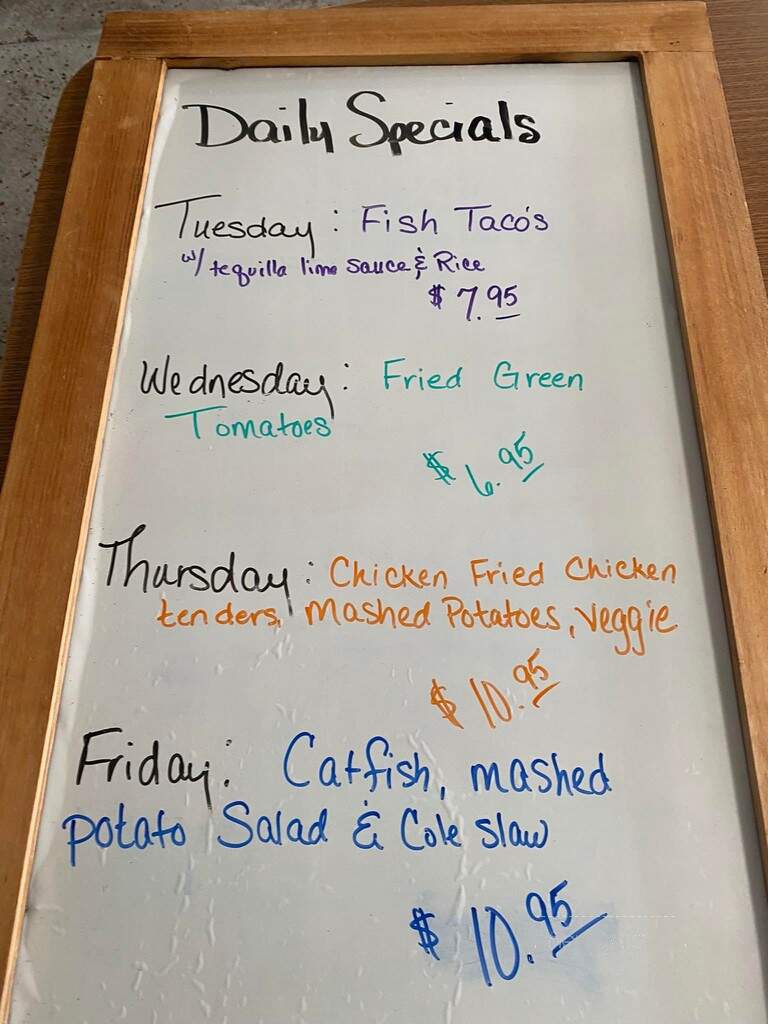 Daily Specials
Tuesday: Fish Taco's
w/ tequilla lime sauce & Rice
$ 7.95
Wednesday: Fried Green
Tomatoes
$ 6.95
Thursday: Chicken Fried Chicken
tenders, mashed Potatoes, veggie
$ 10.95
Friday: Catfish, mashed
potato Salad & Cole slaw
$ 10.95